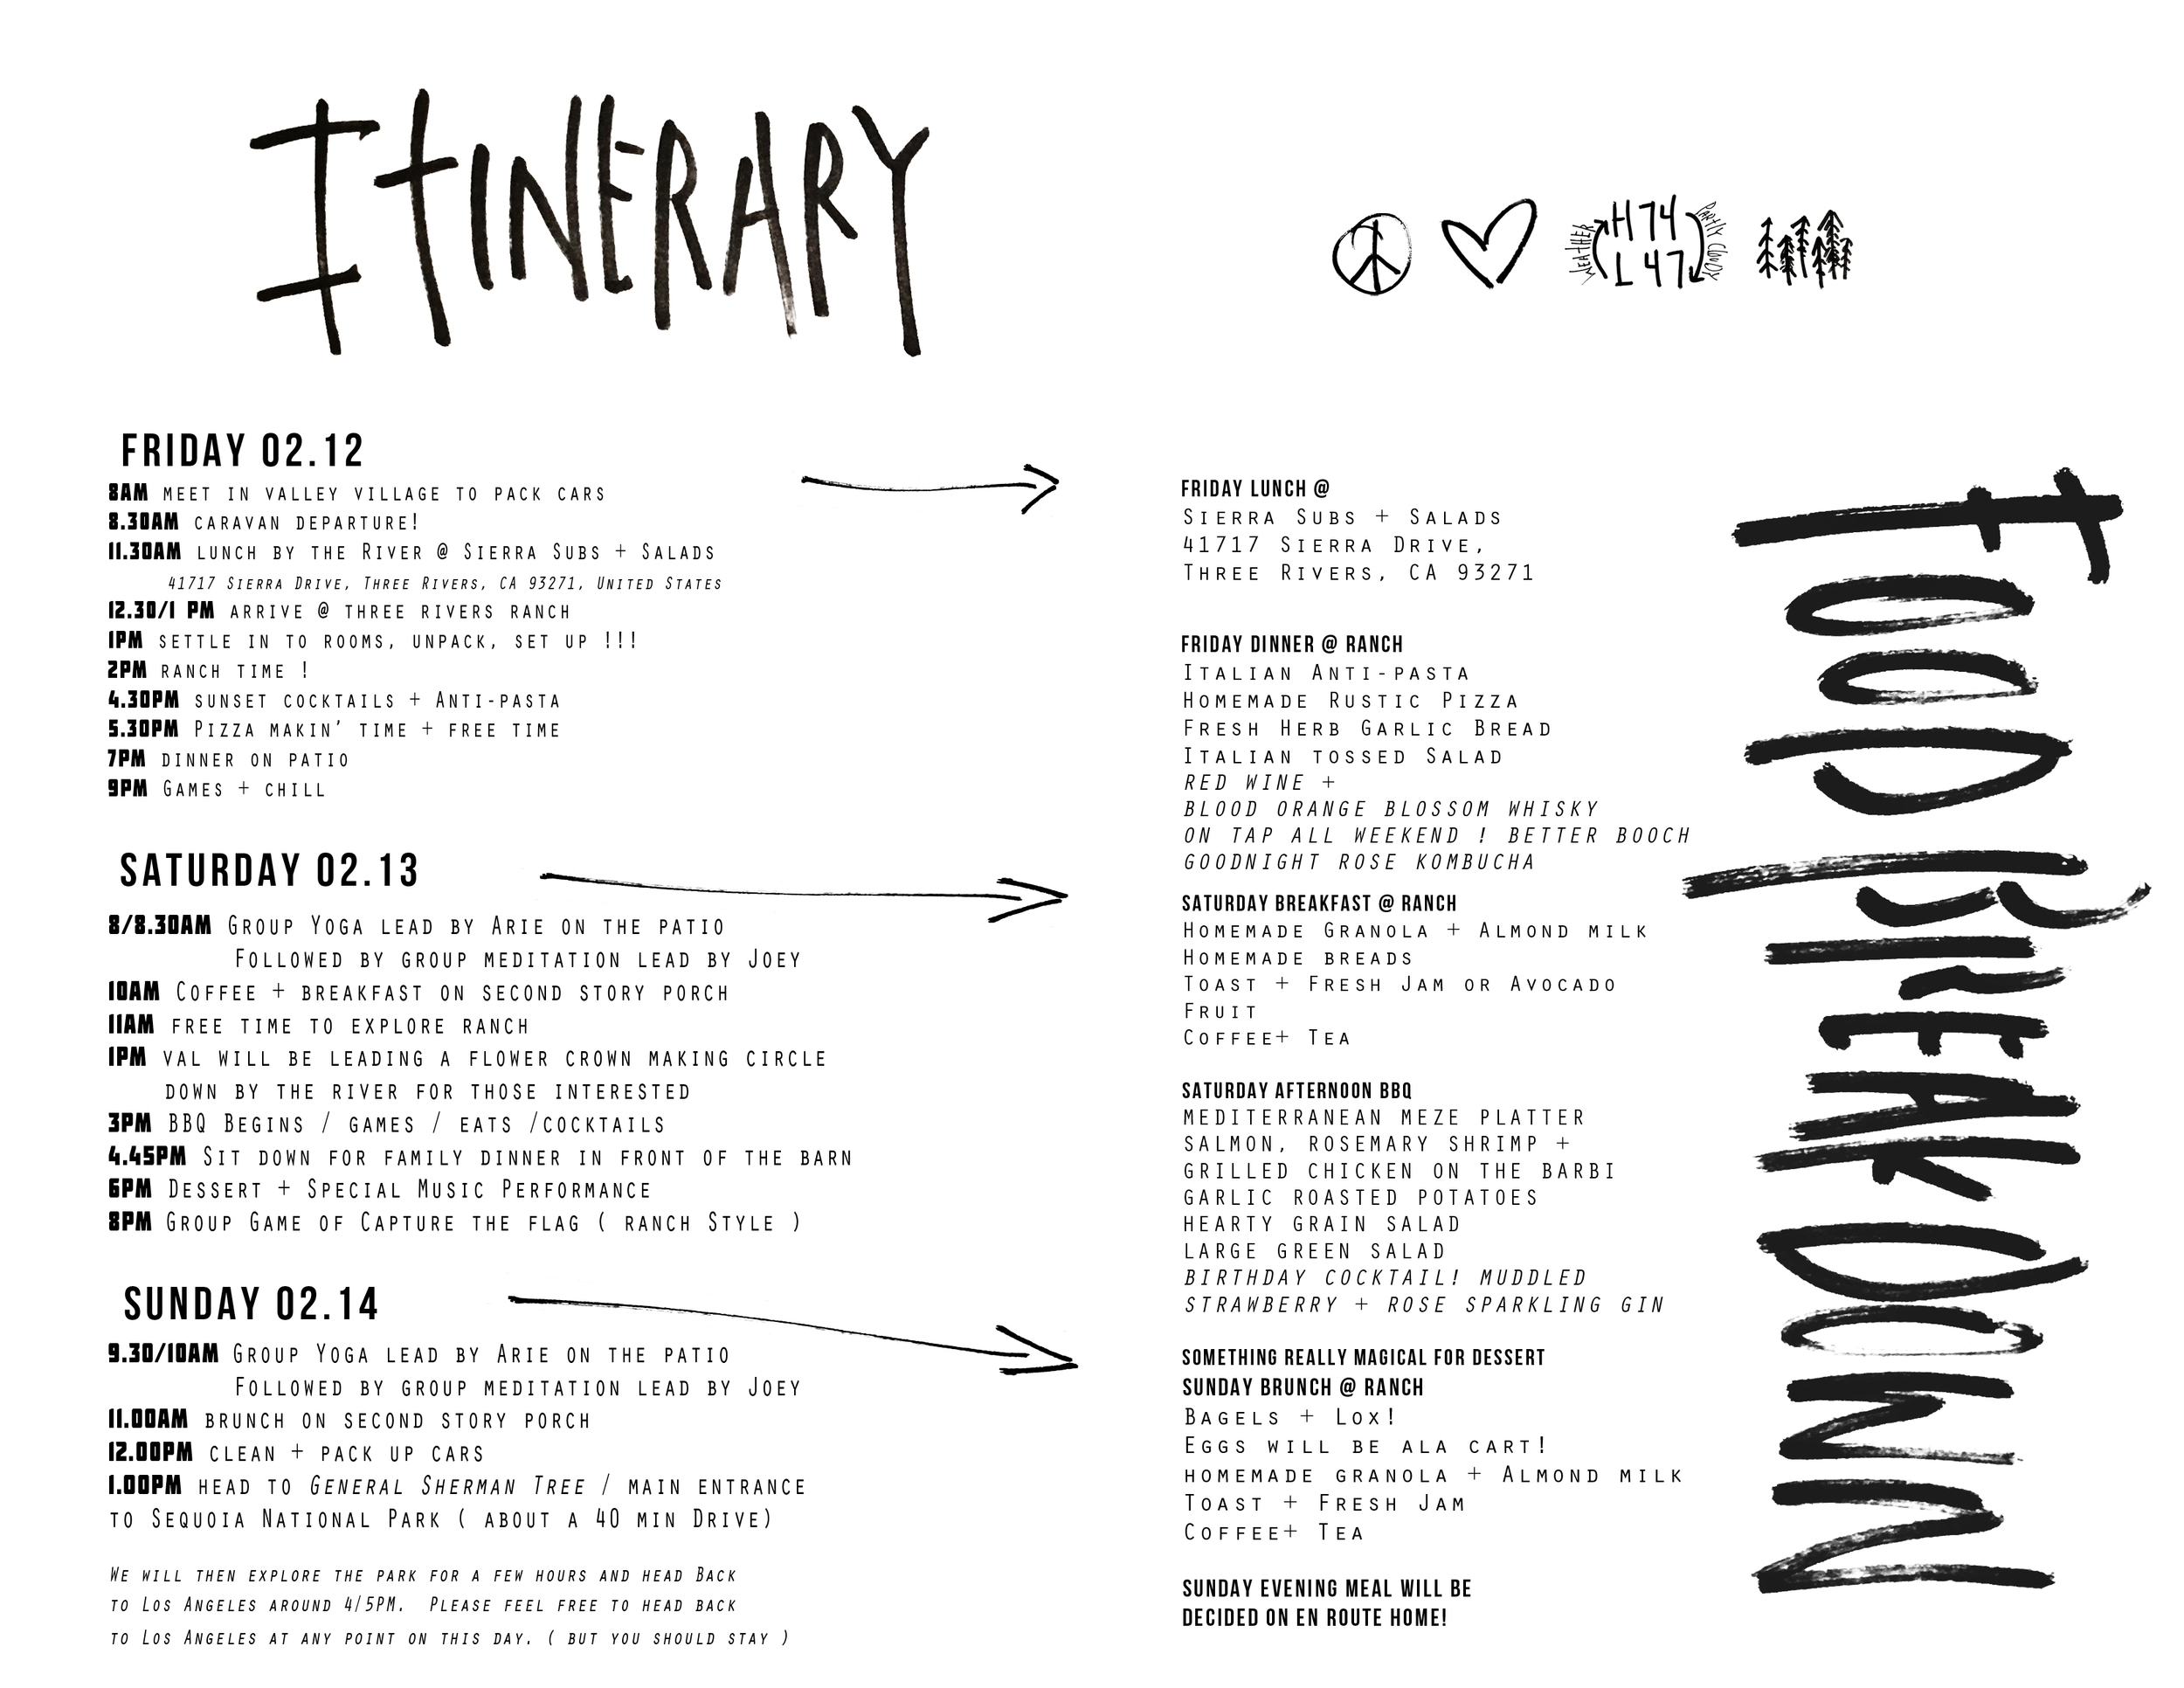 Itinerary
Weather
H 74
L 47
Partly Cloudy
FRIDAY 02.12
8AM MEET IN VALLEY VILLAGE TO PACK CARS
8.30AM CARAVAN DEPARTURE!
11.30AM LUNCH BY THE RIVER @ SIERRA SUBS + SALADS
41717 SIERRA DRIVE, THREE RIVERS, CA 93271, UNITED STATES
12.30/1 PM ARRIVE @ THREE RIVERS RANCH
1PM SETTLE IN TO ROOMS, UNPACK, SET UP !!!
2PM RANCH TIME !
4.30PM SUNSET COCKTAILS + ANTI-PASTA
5.30PM PIZZA MAKIN' TIME + FREE TIME
7PM DINNER ON PATIO
9PM GAMES + CHILL
SATURDAY 02.13
8/8.30AM GROUP YOGA LEAD BY ARIE ON THE PATIO
FOLLOWED BY GROUP MEDITATION LEAD BY JOEY
10AM COFFEE + BREAKFAST ON SECOND STORY PORCH
11AM FREE TIME TO EXPLORE RANCH
1PM VAL WILL BE LEADING A FLOWER CROWN MAKING CIRCLE
DOWN BY THE RIVER FOR THOSE INTERESTED
3PM BBQ BEGINS / GAMES / EATS /COCKTAILS
4.45PM SIT DOWN FOR FAMILY DINNER IN FRONT OF THE BARN
6PM DESSERT + SPECIAL MUSIC PERFORMANCE
8PM GROUP GAME OF CAPTURE THE FLAG ( RANCH STYLE )
SUNDAY 02.14
9.30/10AM GROUP YOGA LEAD BY ARIE ON THE PATIO
FOLLOWED BY GROUP MEDITATION LEAD BY JOEY
11.00AM BRUNCH ON SECOND STORY PORCH
12.00PM CLEAN + PACK UP CARS
1.00PM HEAD TO GENERAL SHERMAN TREE / MAIN ENTRANCE
TO SEQUOIA NATIONAL PARK ( ABOUT A 40 MIN DRIVE)
WE WILL THEN EXPLORE THE PARK FOR A FEW HOURS AND HEAD BACK
TO LOS ANGELES AROUND 4/5PM. PLEASE FEEL FREE TO HEAD BACK
TO LOS ANGELES AT ANY POINT ON THIS DAY. ( BUT YOU SHOULD STAY )
FRIDAY LUNCH @
SIERRA SUBS + SALADS
41717 SIERRA DRIVE,
THREE RIVERS, CA 93271
FRIDAY DINNER @ RANCH
ITALIAN ANTI-PASTA
HOMEMADE RUSTIC PIZZA
FRESH HERB GARLIC BREAD
ITALIAN TOSSED SALAD
RED WINE +
BLOOD ORANGE BLOSSOM WHISKY
ON TAP ALL WEEKEND ! BETTER BOOCH
GOODNIGHT ROSE KOMBUCHA
SATURDAY BREAKFAST @ RANCH
HOMEMADE GRANOLA + ALMOND MILK
HOMEMADE BREADS
TOAST + FRESH JAM OR AVOCADO
FRUIT
COFFEE+ TEA
SATURDAY AFTERNOON BBQ
MEDITERRANEAN MEZE PLATTER
SALMON, ROSEMARY SHRIMP +
GRILLED CHICKEN ON THE BARBI
GARLIC ROASTED POTATOES
HEARTY GRAIN SALAD
LARGE GREEN SALAD
BIRTHDAY COCKTAIL! MUDDLED
STRAWBERRY + ROSE SPARKLING GIN
SOMETHING REALLY MAGICAL FOR DESSERT
SUNDAY BRUNCH @ RANCH
BAGELS + LOX!
EGGS WILL BE ALA CART!
HOMEMADE GRANOLA + ALMOND MILK
TOAST + FRESH JAM
COFFEE+ TEA
SUNDAY EVENING MEAL WILL BE
DECIDED ON EN ROUTE HOME!
FOOD BREAK DOWN